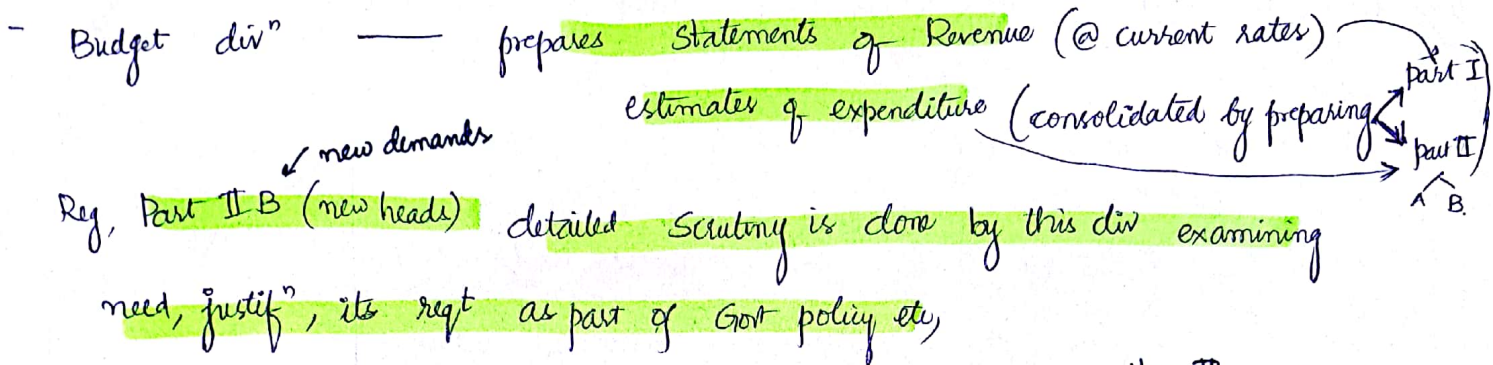 - Budget divⁿ — prepares Statements of Revenue (@ current rates) part I
estimates of expenditure (consolidated by preparing part II)
A B.
↙ new demands
Reg, Part II B (new heads) detailed Scrutiny is done by this div examining
need, justifⁿ, its reqt as part of Govt policy etc,